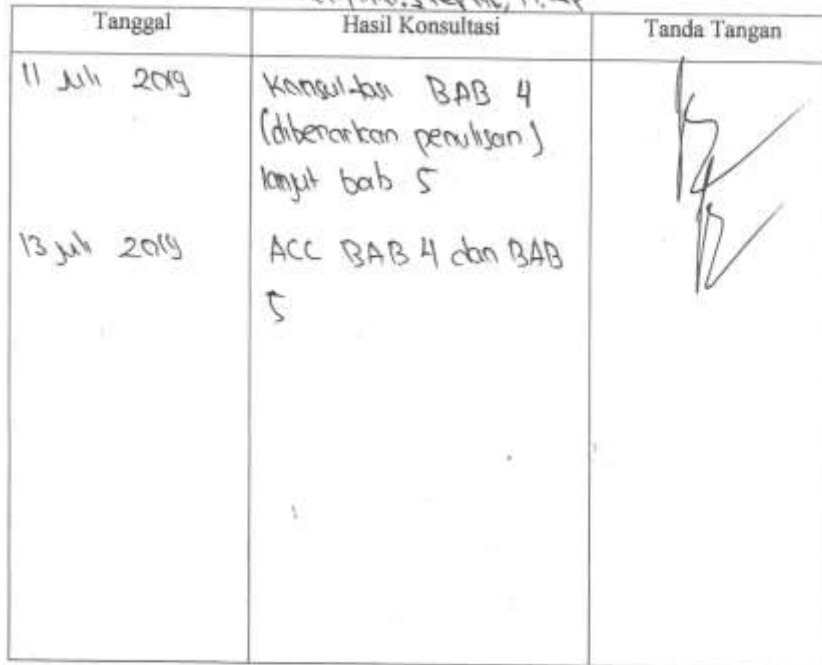 Tanggal Hasil Konsultasi Tanda Tangan
11 Juli 2019 Konsultasi BAB 4
(dibenarkan penulisan)
lanjut bab 5
13 Juli 2019 ACC BAB 4 dan BAB
5